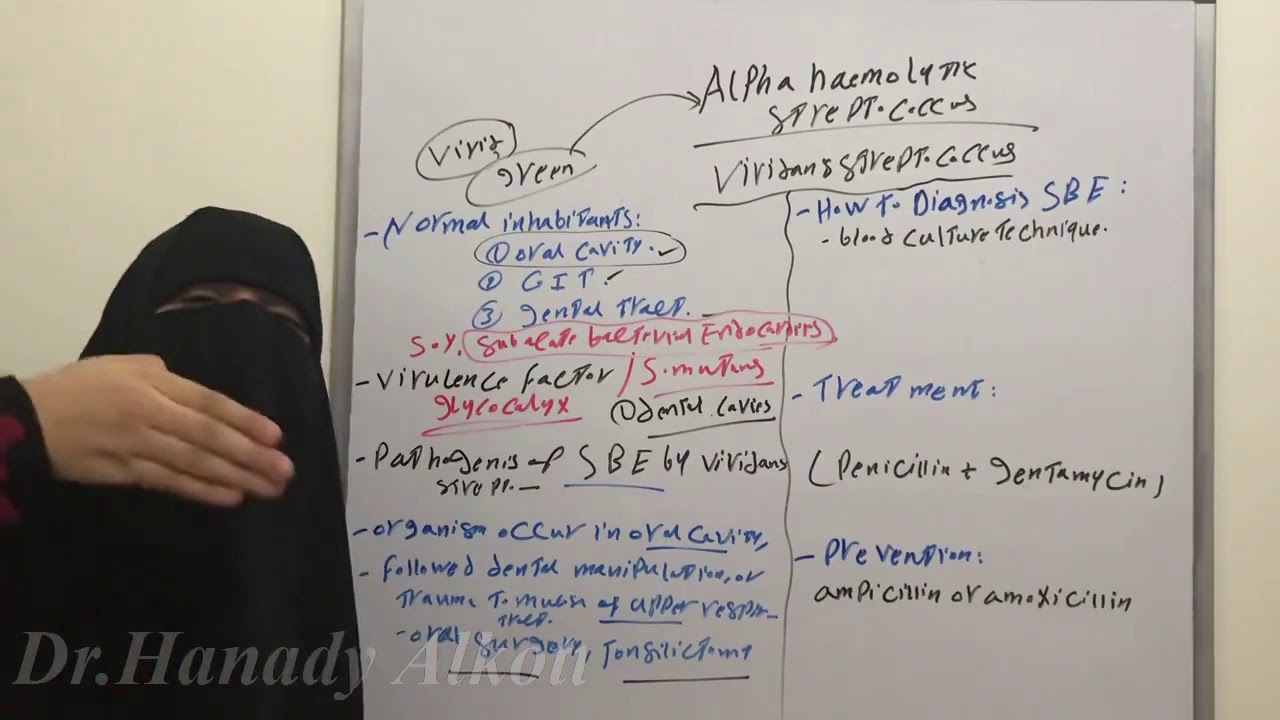 Alpha haemolytic
streptococcus
Virid
green
Viridans streptococcus
- Normal inhabitants:
① oral cavity. ✓
② GIT ✓
③ genital tract.
Subacute bacterial Endocarditis
- Virulence factor / S.mutans
glycocalyx ① dental caries
- Pathogenis of SBE by viridans
strept.
- organism occur in oral cavity,
- followed dental manipulation, or
trauma to of upper respir
tract.
- oral surgery, Tonsilictomy
- How to Diagnosis SBE:
- blood culture technique.
- Treatment:
(Penicillin + gentamycin)
- Prevention:
ampicillin or amoxicillin
Dr.Hanady Alkou